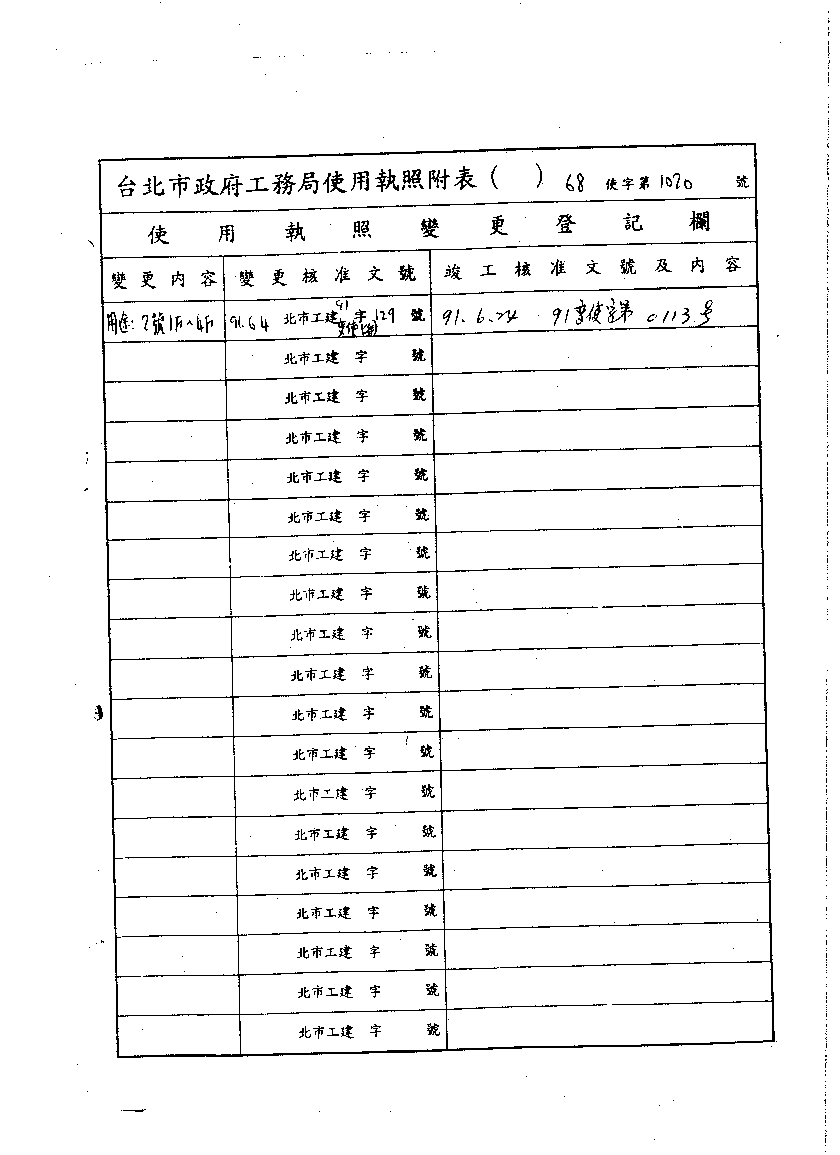 台北市政府工務局使用執照附表（　） 68 使字第 1070 號
使用執照變更登記欄
變更內容 變更核准文號 竣工核准文號及內容
用途:2號1F~4F 91.6.4 北市工建 91 字 129 號 91.6.24 91變使字第0113号
變使(准)
北市工建 字 號
北市工建 字 號
北市工建 字 號
北市工建 字 號
北市工建 字 號
北市工建 字 號
北市工建 字 號
北市工建 字 號
北市工建 字 號
北市工建 字 號
北市工建 字 號
北市工建 字 號
北市工建 字 號
北市工建 字 號
北市工建 字 號
北市工建 字 號
北市工建 字 號
北市工建 字 號